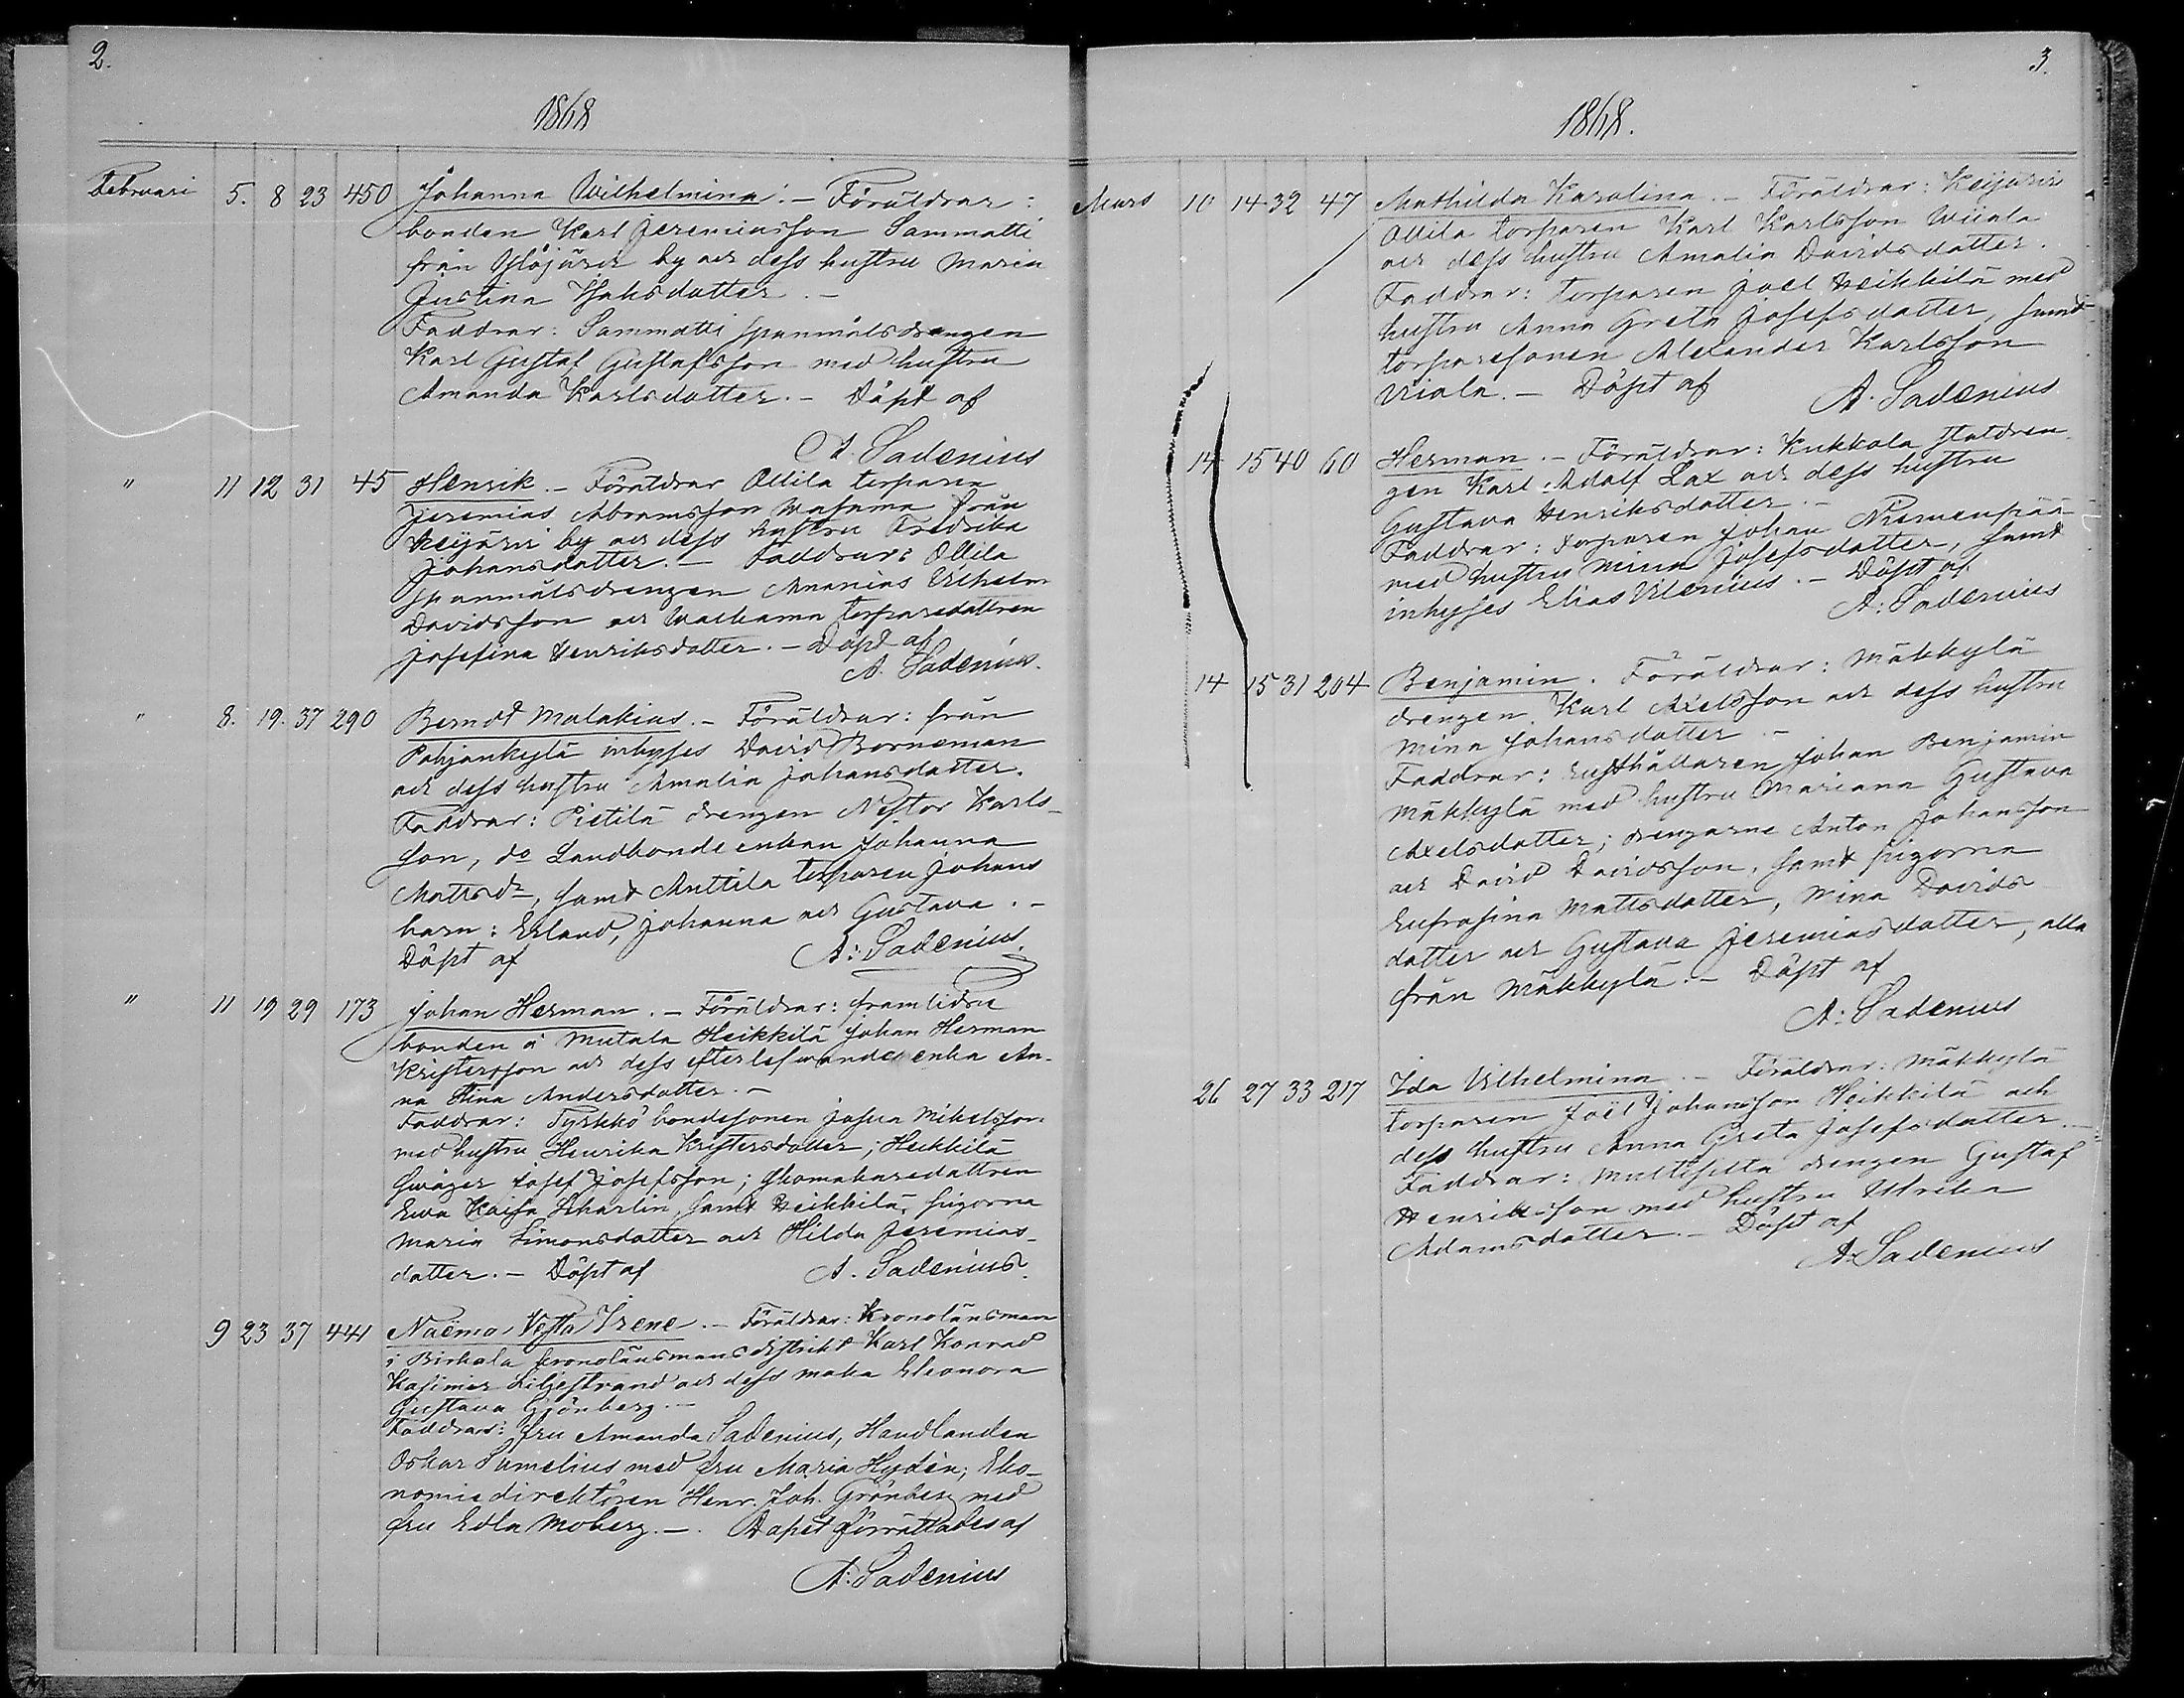 2.
1868
Februari 5. 8 23 450 Johanna Wilhelmina. - Föräldrar:
bonden Karl Jeremiasson Sammatti
från Ylöjärvi by och dess hustru Maria
Justina Isaksdotter. -
Faddrar: Sammatti spanmålsdrengen
Karl Gustaf Gustafsson med hustru
Amanda Karlsdotter. - Döpt af
A. Sadenius
" 11 12 31 45 Henrik. - Föräldrar Ollila torparen
Jeremias Abramsson från
Keijärvi by och dess hustru Fredrika
Johansdotter. - Faddrar: Ollila
spanmålsdrengen Ananias Vilhelm
Davidsson och torparedottren
Josefina Henriksdotter. - Döpt af
A. Sadenius.
" 8. 19. 37 290 Berndt Malakias. - Föräldrar: från
Pohjankylä inhyses David Borneman
och dess hustru Amalia Johansdotter.
Faddrar: Pietilä drengen Nestor Karls-
son, do Landbonde enkan Johanna
Mattsdr, samt Anttila torparen Johans
barn: Erland, Johanna och Gustava. -
Döpt af A: Sadenius.
" 11 19 29 173 Johan Herman. - Föräldrar: framlidne
bonden å Mutala Heikkilä Johan Herman
Kristersson och dess efterlefvande enka An-
na Stina Andersdotter. -
Faddrar: Tyrkkö bondesonen Josua Mikelsson
med hustru Henrika Kristersdotter; Heikkilä
svåger Josef Josefsson; skomakaredottren
Eva Kaisa Scharlin, samt Heikkilä pigorna
Maria Simonsdotter och Hilda Jeremias-
dotter. - Döpt af A. Sadenius.
9 23 37 441 Naëma Vesta Irene. - Föräldrar: Kronolänsman
i Birkala kronolänsmansdistrikt Karl Konrad
Kasimir Liljestrand och dess maka Eleonora
Gustava Grönberg. -
Faddrar: fru Amanda Sadenius, Handlanden
Oskar Sumelius med fru Maria Hydén; Eko-
nomiedirektören Henr. Joh. Grönberg med
fru Edla Moberg. -. Dopet förrättades af
A. Sadenius
3.
1868.
Mars 10 14 32 47 Mathilda Karolina. - Föräldrar: Keijärvi
Ollila torparen Karl Karlsson Wiiala
och dess hustru Amalia Davidsdotter.
Faddrar: torparen Joel Heikkilä med
hustru Anna Greta Josefsdotter, samt
torparesonen Alexander Karlsson
Viiala. - Döpt af A. Sadenius.
14 15 40 60 Herman. - Föräldrar: Kukkola statdren-
gen Karl Adolf Lax och dess hustru
Gustava Henriksdotter. -
Faddrar: torparen Johan Niemenpää
med hustru Mina Josefsdotter, samt
inhyses Elias Vilenius. - Döpt af
A: Sadenius
14 15 31 204 Benjamin. Föräldrar: Mäkkylä
drengen Karl Axelsson och dess hustru
Mina Johansdotter. -
Faddrar: rusthållaren Johan Benjamin
Mäkkylä med hustru Mariana Gustava
Axelsdotter; drengarne Anton Johansson
och David Davidsson, samt pigorna
Eufrosina Mattsdotter, Mina Davids
dotter och Gustava Jeremiasdotter, alla
från Mäkkylä. - Döpt af
A: Sadenius
26 27 33 217 Ida Vilhelmina. - Föräldrar: Mäkkylä
torparen Joël Johansson Heikkilä och
dess hustru Anna Greta Josefsdotter. -
Faddrar: Multisilta drengen Gustaf
Henriksson med hustru Ulrika
Adamsdotter. - Döpt af
A: Sadenius